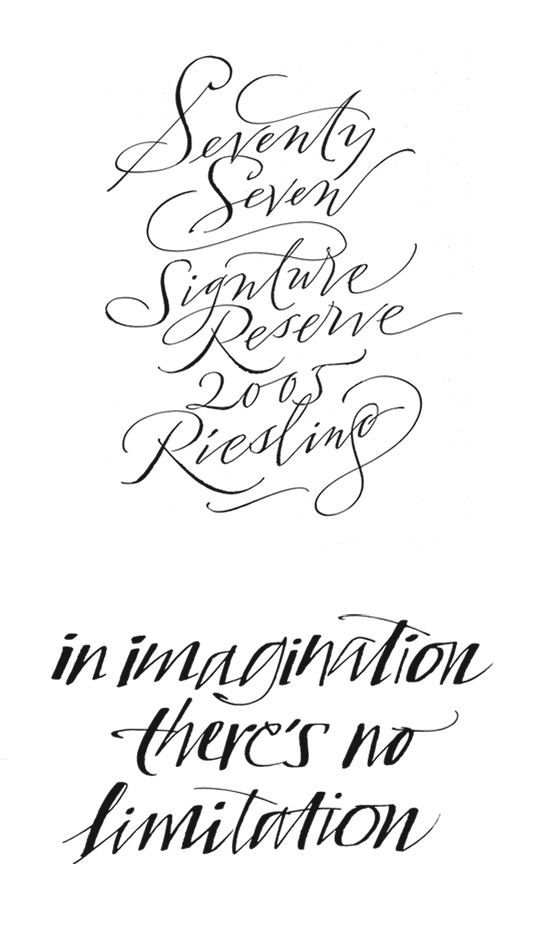 Seventy
Seven
Signture
Reserve
2005
Riesling
in imagination
there's no
limitation